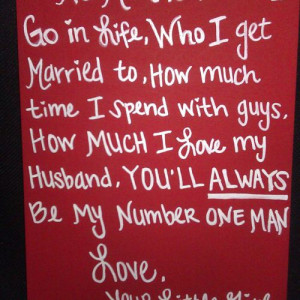 Go in Life, Who I get
Married to, How much
time I spend with guys,
HOW MUCH I Love my
Husband, YOU'LL ALWAYS
Be My Number ONE MAN
Love,
Your Little Girl